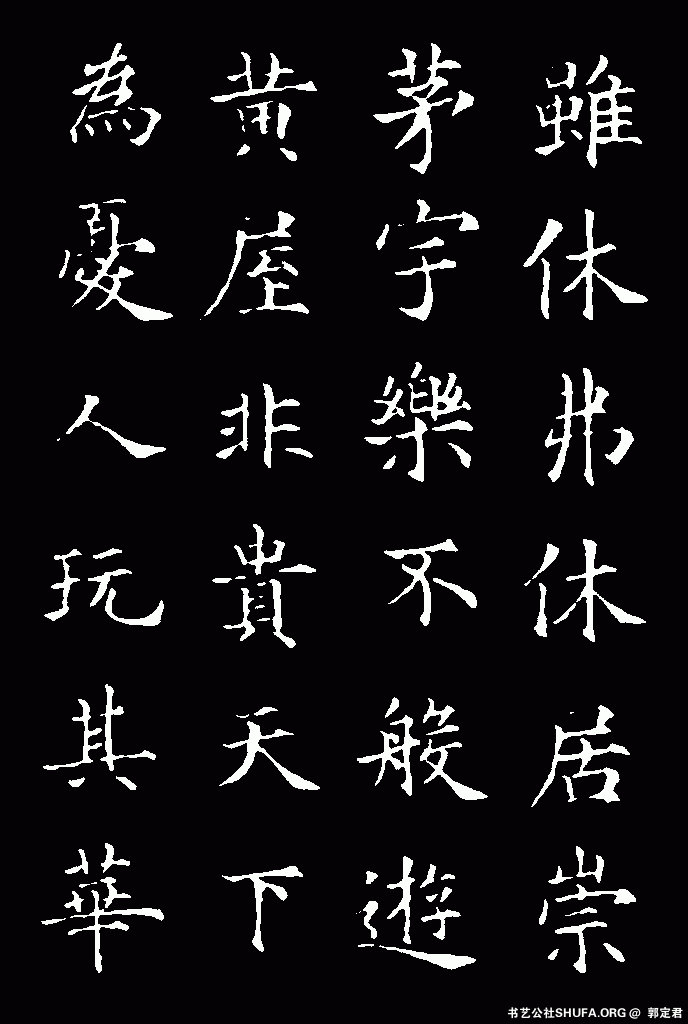 雖休弗休居崇
茅宇樂不般遊
黃屋非貴天下
為憂人玩其華
书艺公社SHUFA.ORG @ 郭定君